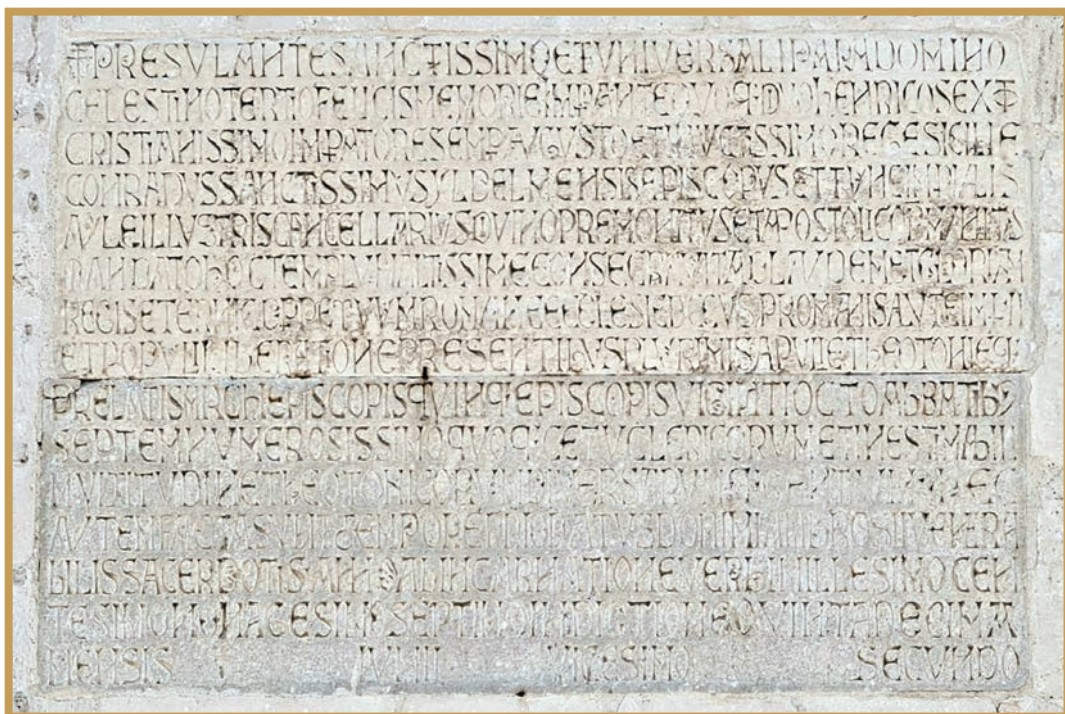 ✝PRESVLANTE SANCTISSIMO ET VNIVERSALI PAPA DOMINO
CELESTINO TERTIO FELICIS MEMORIE IMPANTE QVOQ DNO HENRICO SEXTO
CRISTIANISSIMO IMPATORE SEMP AVGVSTO ET INVICTISSIMO REGE SICILIE
CONRADVS SANCTISSIMVS YLDELMENSIS EPISCOPVS ET TVNC IMPIALIS
AVLE ILLVSTRIS CANCELLARIVS DIVINO PREMONITVS ET APOSTOLICO
MANDATO HOC TEMPLVM ALTISSIME CONSECRAVIT AD LAVDEM ET GLORIAM
REGIS ETERNI ROMANE ECCLESIE DECVS PRO MANI SALVTE
ET POPVLI LIBERATIONE PRESENTIBVS PLVRIMIS APVLIE THEOTONIE Q
PRELATIS ARCHIEPISCOPIS QVINQ EPISCOPIS VIGINTI OCTO ABBATIB9
SEPTEM NVMEROSISSIMO QVOQ CETV CLERICORVM ET INESTIMABILI
MVLTITVDINE THEOTONICORVM HEC
AVTEM FACTA SVNT TEMPORE DOMINI AMBROSII VENERA
BILIS SACERDOTIS ANNO AB INCARNATIONE VERBI MILLESIMO CEN
TESIMO NONAGESIMO SEPTIMO INDICTIONE QVINTADECIMA
MENSIS IVNII VICESIMO SECVNDO